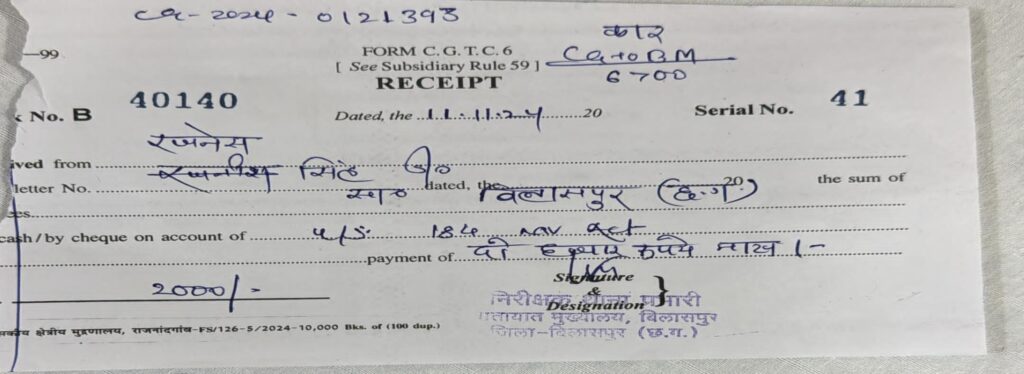 CG-2024-0121393
कार
—99
FORM C. G. T. C. 6
CG10BM
[ See Subsidiary Rule 59 ]
6700
RECEIPT
No. B 40140 Dated, the 11.11.24 20 Serial No. 41
रजनेस
ived from रजनीश सिंह
letter No. dated, the 20 the sum of
बिलासपुर (छ.ग)
cash/by cheque on account of u/s. 184 MV Act
payment of दो हजार रूपये मात्र /-
2000/-
Signature
&
Designation
निरीक्षक थाना प्रभारी
यातायात मुख्यालय, बिलासपुर
जिला-बिलासपुर (छ.ग.)
क्षेत्रीय मुद्रणालय, राजनांदगांव-FS/126-5/2024-10,000 Bks. of (100 dup.)